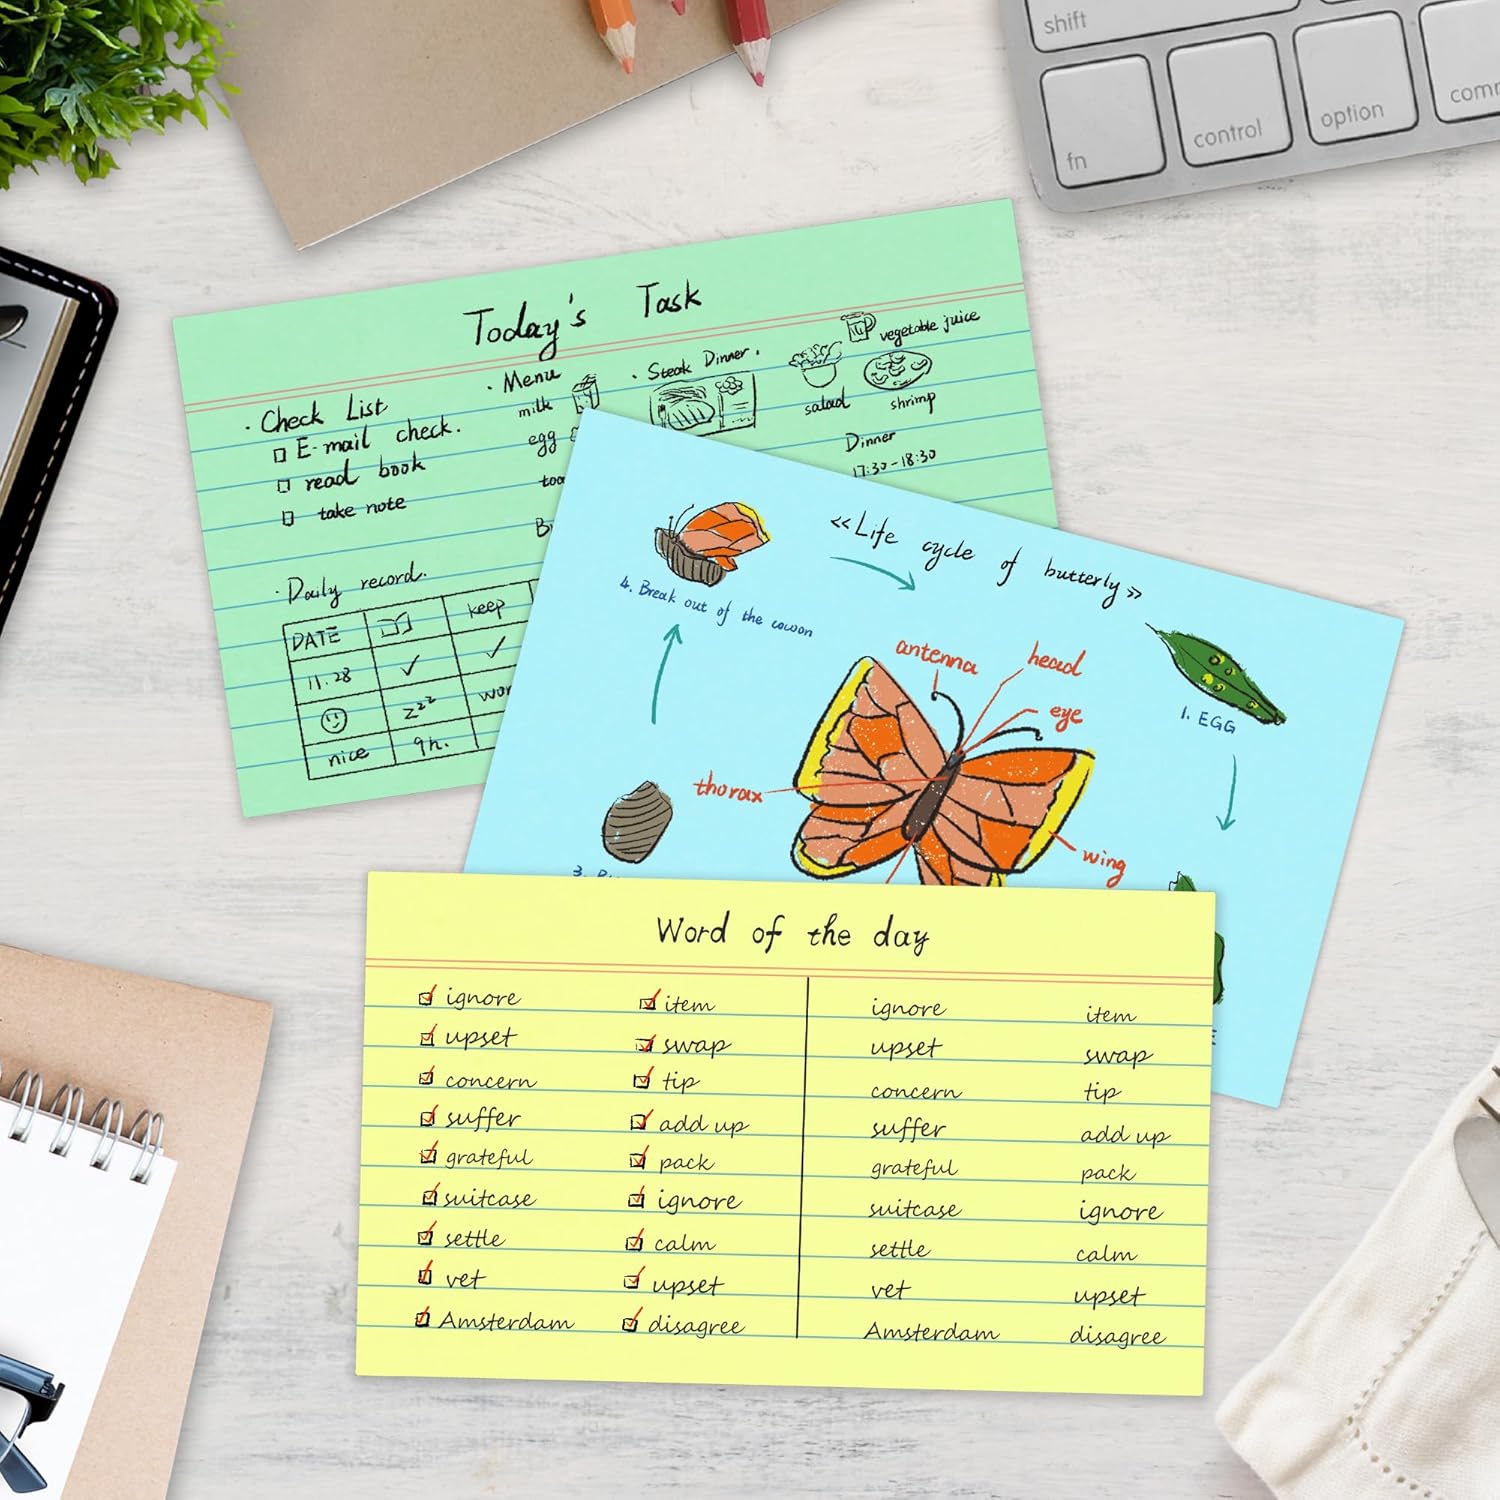 shift
fn
control
option
Today's Task
· Check List
E-mail check.
read book
take note
· Menu
milk
egg
· Steak Dinner.
vegetable juice
salad
shrimp
Dinner
17:30-18:30
· Daily record.
DATE keep
11.28
zzz
nice 9h.
«Life cycle of butterly»
4. Break out of the cocoon
antenna
head
eye
thorax
wing
1. EGG
3.
Word of the day
ignore item ignore item
upset swap upset swap
concern tip concern tip
suffer add up suffer add up
grateful pack grateful pack
suitcase ignore suitcase ignore
settle calm settle calm
vet upset vet upset
Amsterdam disagree Amsterdam disagree